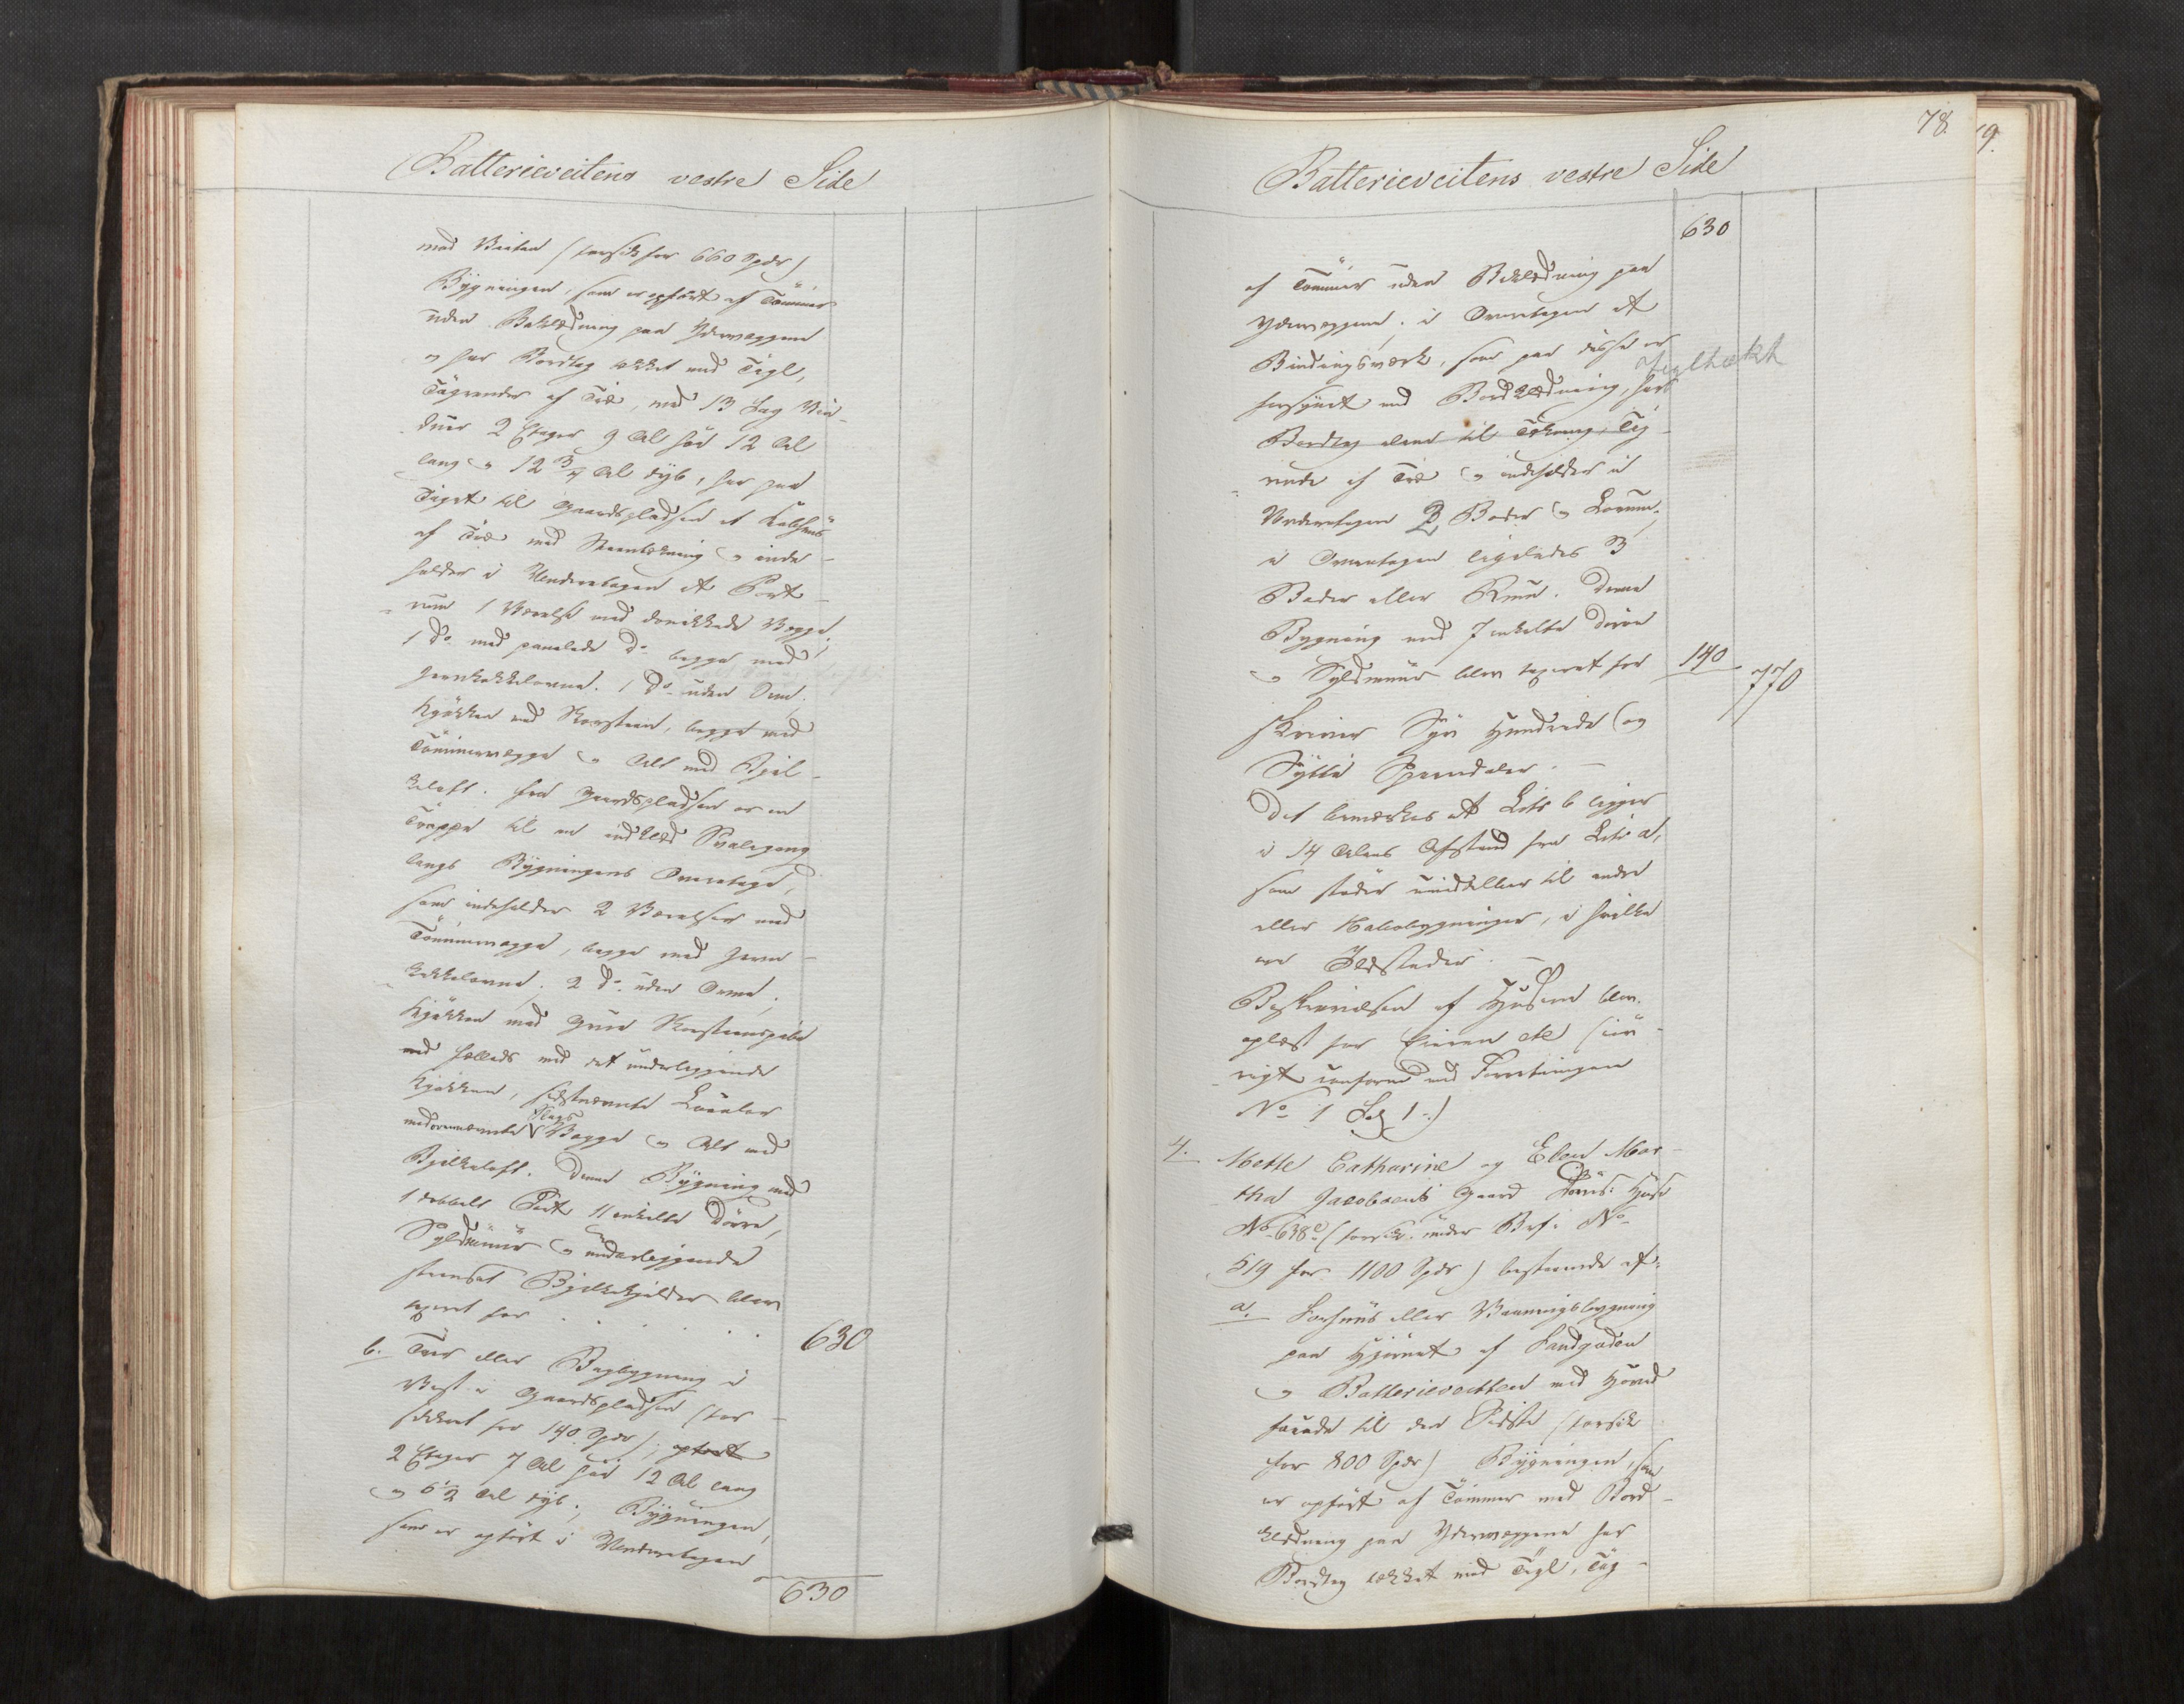 Batterieveitens vestre Side
mod Veiten (forsik for 660 Spdr)
Bygningen, som er opført af Tømmer
uden Beklædning paa Ydervæggene
og har Bordtag tækket med Tegl,
Tagrender af Træ, med 13 Fag Vin-
duer 2 Etager 9 Al høi 12 Al
lang og 12 3/4 Al dyb, har paa
Taget til Gaardspladsen et
af Træ med Steentækning og inde-
holder i Underetagen et Port-
rum 1 Værelse med Vægge,
1 Do med panelede Do begge med
Jernkakkelovne. 1 Do uden Ovn.
Kjøkken med Skorsteen, begge med
Tømmervægge og Alt med Bjel-
keloft. Fra Gaardspladsen er en
Trappe til en indklæd Svalegang
langs Bygningens Overetage,
som indeholder 2 Værelser med
Tømmervægge, begge med Jern-
kakkelovne. 2 Do uden Ovne,
Kjøkken med Grue Skorsteenspibe
med fælleds med det underliggende
Kjøkken, sidstnævnte Localer
med ovennævnte Slags Vægge og Alt med
Bjelkeloft. Denne Bygning med
1 dobbelt Port 11 enkelte Dørre,
Syldmuur og underliggende
steensat Bjelkekjelder blev
taxeret for . . . . . 630
b. Tver eller Bagbygning i
Vest i Gaardspladsen (for-
sikkret for 140 Spdr); opført
2 Etager 7 Al høi 12 Al lang
og 6 1/2 Al dyb; Bygningen,
som er opført i Underetagen
630
78.
19.
Batterieveitens vestre Side
630
af Tømmer uden Beklædning paa
Ydervæggene, i Overetagen af
Bindingsværk, som paa disse er
Teglhækt
forsynet med Bordklædning, har
Bordtag alene til Tækning, Tag-
rende af Træ og indeholder i
Underetagen 3 Boder og Locum,
i Overetagen ligeledes 3
Boder eller Rum. Denne
Bygning med 7 enkelte Dørre
og Syldmuur blev taxeret for 140
770
skriver Syv Hundrede og
Sytti Speciedaler. —
Det bemærkes at Litr b ligger
i 14 Alens Afstand fra Litr a,
som støder umiddelbar til andre
eller Nabobygninger, i hvilke
ere Ildsteder. —
Beskrivelsen af Husene blev
oplæst for Eieren etc (iøv-
rigt conform med Forretningen
No 1 Fol 1.)
4. Mette Catharine og Elen Mar-
tha Jacobsens Gaard Huse
No 638c (forsik. under Brf. No
519 for 1100 Spdr) bestaaende af:
a. Forhuus eller Vaaningsbygning
paa Hjørnet af Sandgaden
og Batterieveitten med Hoved
facade til den Sidste (forsik
for 800 Spdr) Bygningen, som
er opført af Tømmer med Bord-
klædning paa Ydervæggene har
Bordtag tækket med Tegl, Tag-